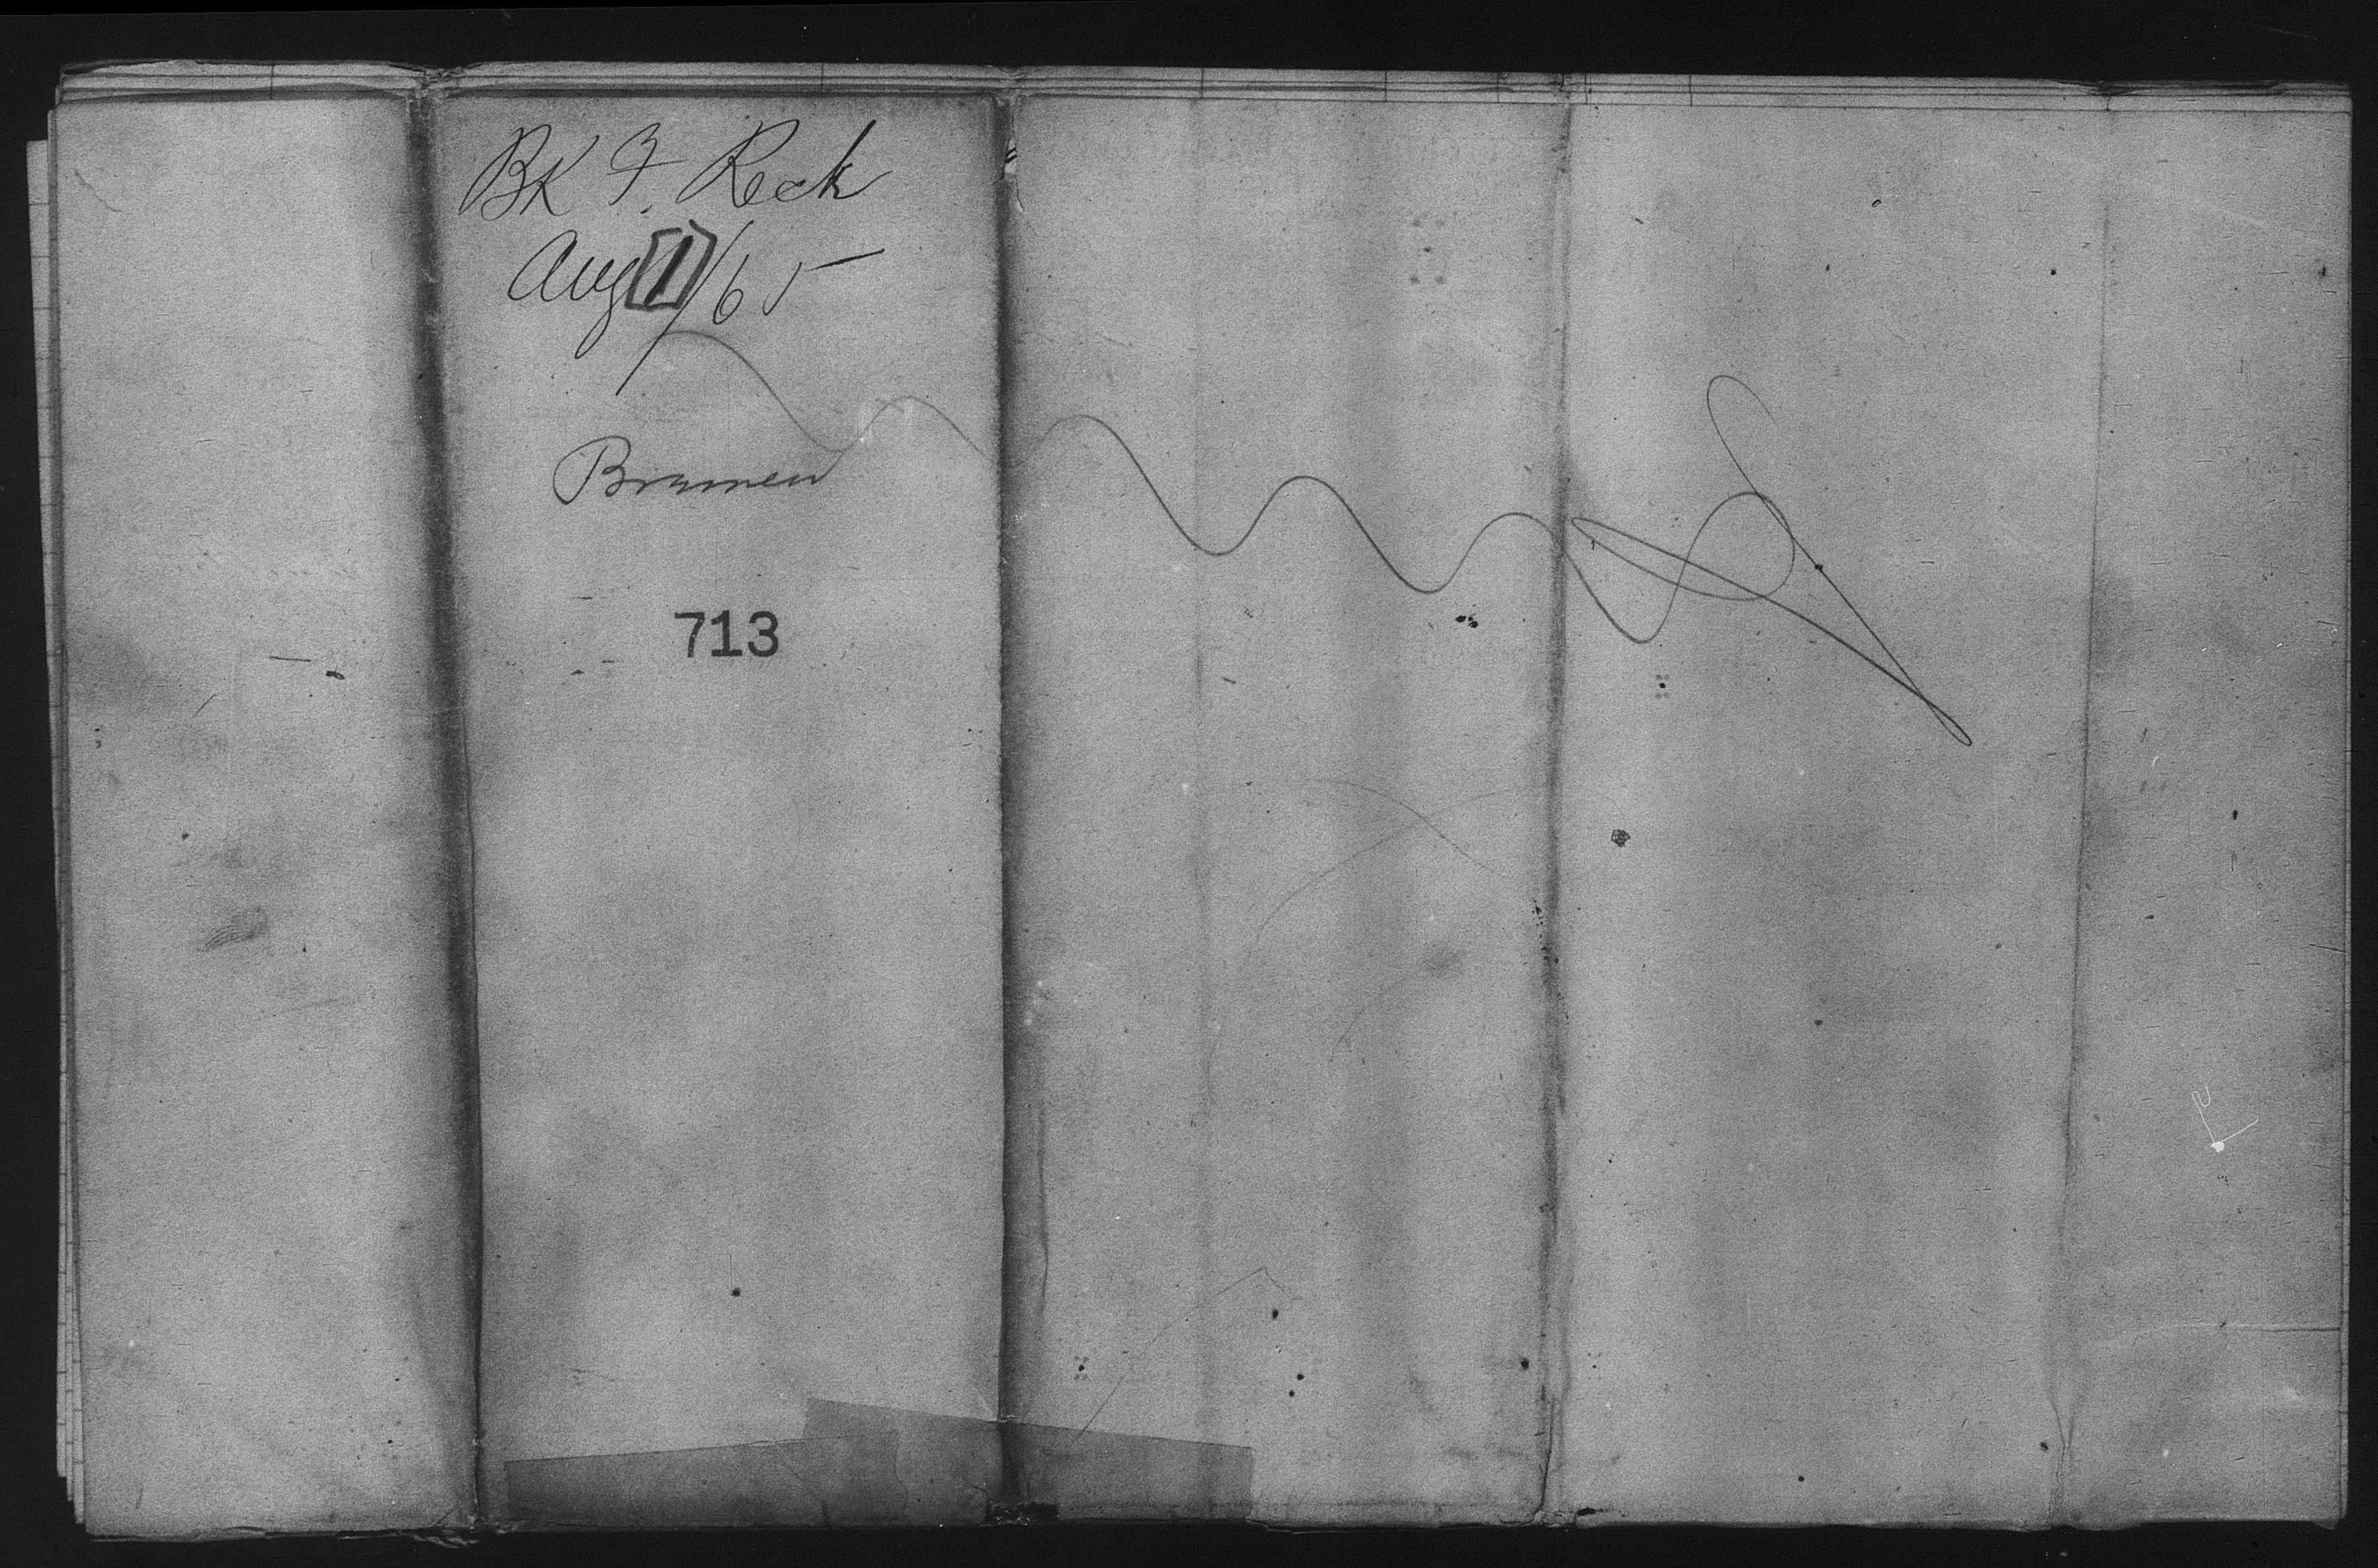 BK F. Reck
Aug 1/65
Bremen
713